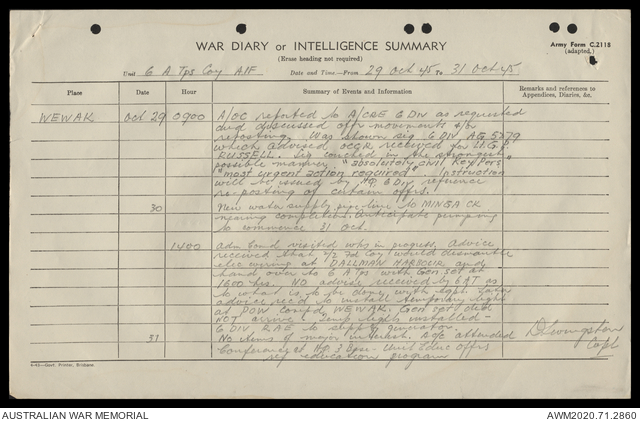 WAR DIARY or INTELLIGENCE SUMMARY
(Erase heading not required)
Army Form C.2118
(adapted.)
Unit 6 A Tps Coy AIF Date and Time.—From 29 Oct 45 To 31 Oct 45.
Place Date Hour Summary of Events and Information Remarks and references to
Appendices, Diaries, &c.
WEWAK Oct 29 0900 A/OC reported to A/CRE 6 DIV as requested
and discussed offr movements &/or
reposting. Was shown sig 6 DIV AG 5579
which advised received for
RUSSELL. Sig couched in the strongest
possible manner, "absolutely
"most urgent action required". Instruction
will be issued by HQ 6 Div reference
re-posting of certain offrs.
30 New water supply pipe-line to MINGA CK
nearing completion. Anticipate pumping
to commence 31 Oct.
1400 Adm Comd visited wks in progress, advice
received that 2/2 Fd Coy would dismantle
elec wiring at DALLMAN HARBOUR and
hand over to 6 A Tps with Gen. set at
1600 hrs. NO advise received by 6 AT as
to what is to be done with eqpt. Later
advice rec'd to install temporary lights
at POW Comp'd WEWAK. Gen sets did
NOT arrive & temp lights installed -
6 DIV RAE to supply generator.
31 No items of major interest. A/OC attended
Conference at HQ 3 Base - Unit Educ offrs
ref education program
DLivingston
Capt
AUSTRALIAN WAR MEMORIAL
AWM2020.71.2860